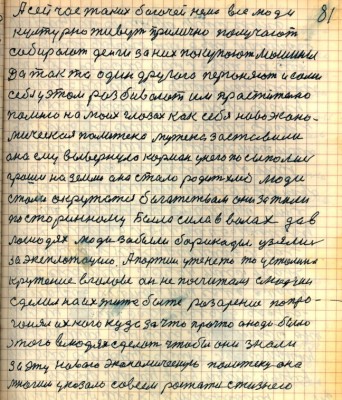 81
А сейчас таких богачей нема все люди
культурно живут прилично получают
собирают деньги за них покупают машины
Да так то один другого перегоняют и сами
себя у этом разбивают им простительно
помню на моих глазах как себя новоэконо-
мическая политека мужека заставили
она ему вывернула карман у него посыпались
гроши на землю она стала родит хлеб люди
стали окружатся богатством они зажили
по старинному Была сила в волах да в
лошадях люди забыли барикады узялись
за эксплотацию А партии ученето то у
крутение в голове он не посчитали с людми
сделали на их жите бытё разарение
их кого куда за что про што а надо было
этого в людях сделат чтобы они знали
за эту новаю экономическую политеку она
многим указала совсем